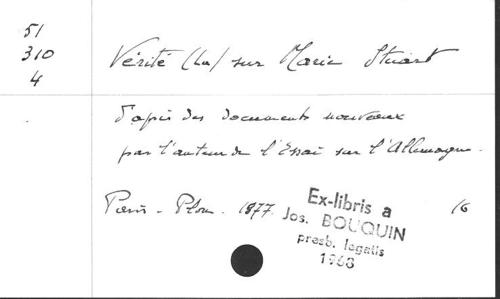 51
310
4
Vérité (La) sur Marie Stuart
d'après des documents nouveaux
par l'auteur de l'Essai sur l'Allemagne.
Paris - Plon - 1877. 16
Ex-libris a
Jos. BOUQUIN
presb. legatis
1968